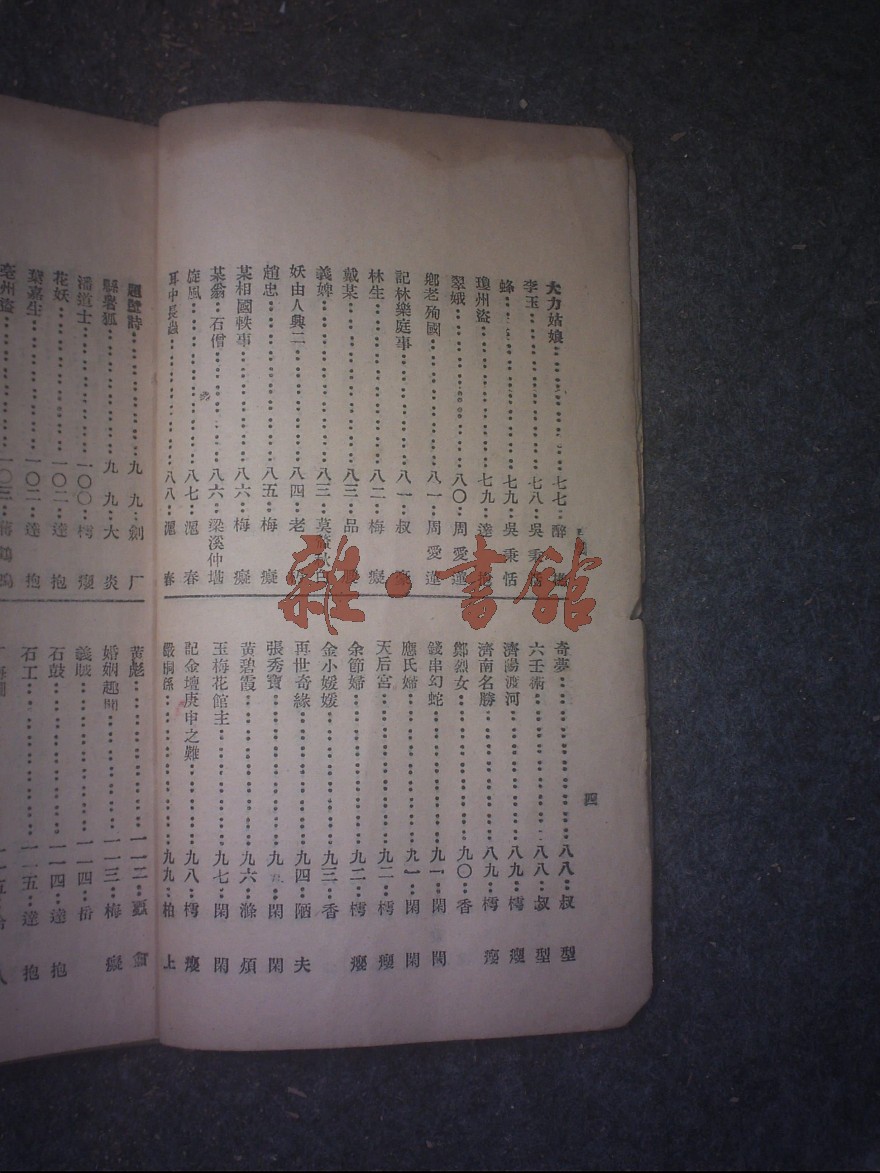 大力姑娘 七七 醉
李玉 七八 吳秉恬
蜂 七九 吳秉恬
瓊州盜 七九 達抱
翠娥 八〇 周愛蓮
鄉老殉國 八一 周愛蓮
記林樂庭事 八一 叔
林生 八二 梅癡
戴某 八三 品
義婢 八三 莫 秋白
妖由人興二 八四 老
趙忠 八五 梅癡
某相國軼事 八六 梅癡
某翁 石僧 八六 梁溪仲 
旋風 八七 滬春
耳中長蟲 八八 滬春
奇夢 八八 叔型
六壬術 八八 叔型
濟陽渡河 八九 樗癭
濟南名勝 八九 樗癭
鄭烈女 九〇 香
錢串幻蛇 九一 閑閑
應氏婦 九一 閑閑
天后宮 九二 樗癭
余節婦 九二 樗癭
金小媛媛 九三 香
再世奇緣 九四 陋夫
張秀寶 九 閑閑
黃碧霞 九六 滌煩
玉梅花館主 九七 閑閑
記金壇庚申之難 九八 樗癭
嚴嗣係 九九 柏上
四
雜·書館
題壁詩 九九 劍厂
狐 九九 大炎
潘道士 一〇〇 樗癭
花妖 一〇二 達抱
葉嘉生 一〇二 達抱
亳州盜 一〇三
黃彪 一一二
婚姻趣聞 一一三 梅癡
義 一一四
石鼓 一一四 達抱
石工 一一五 達抱